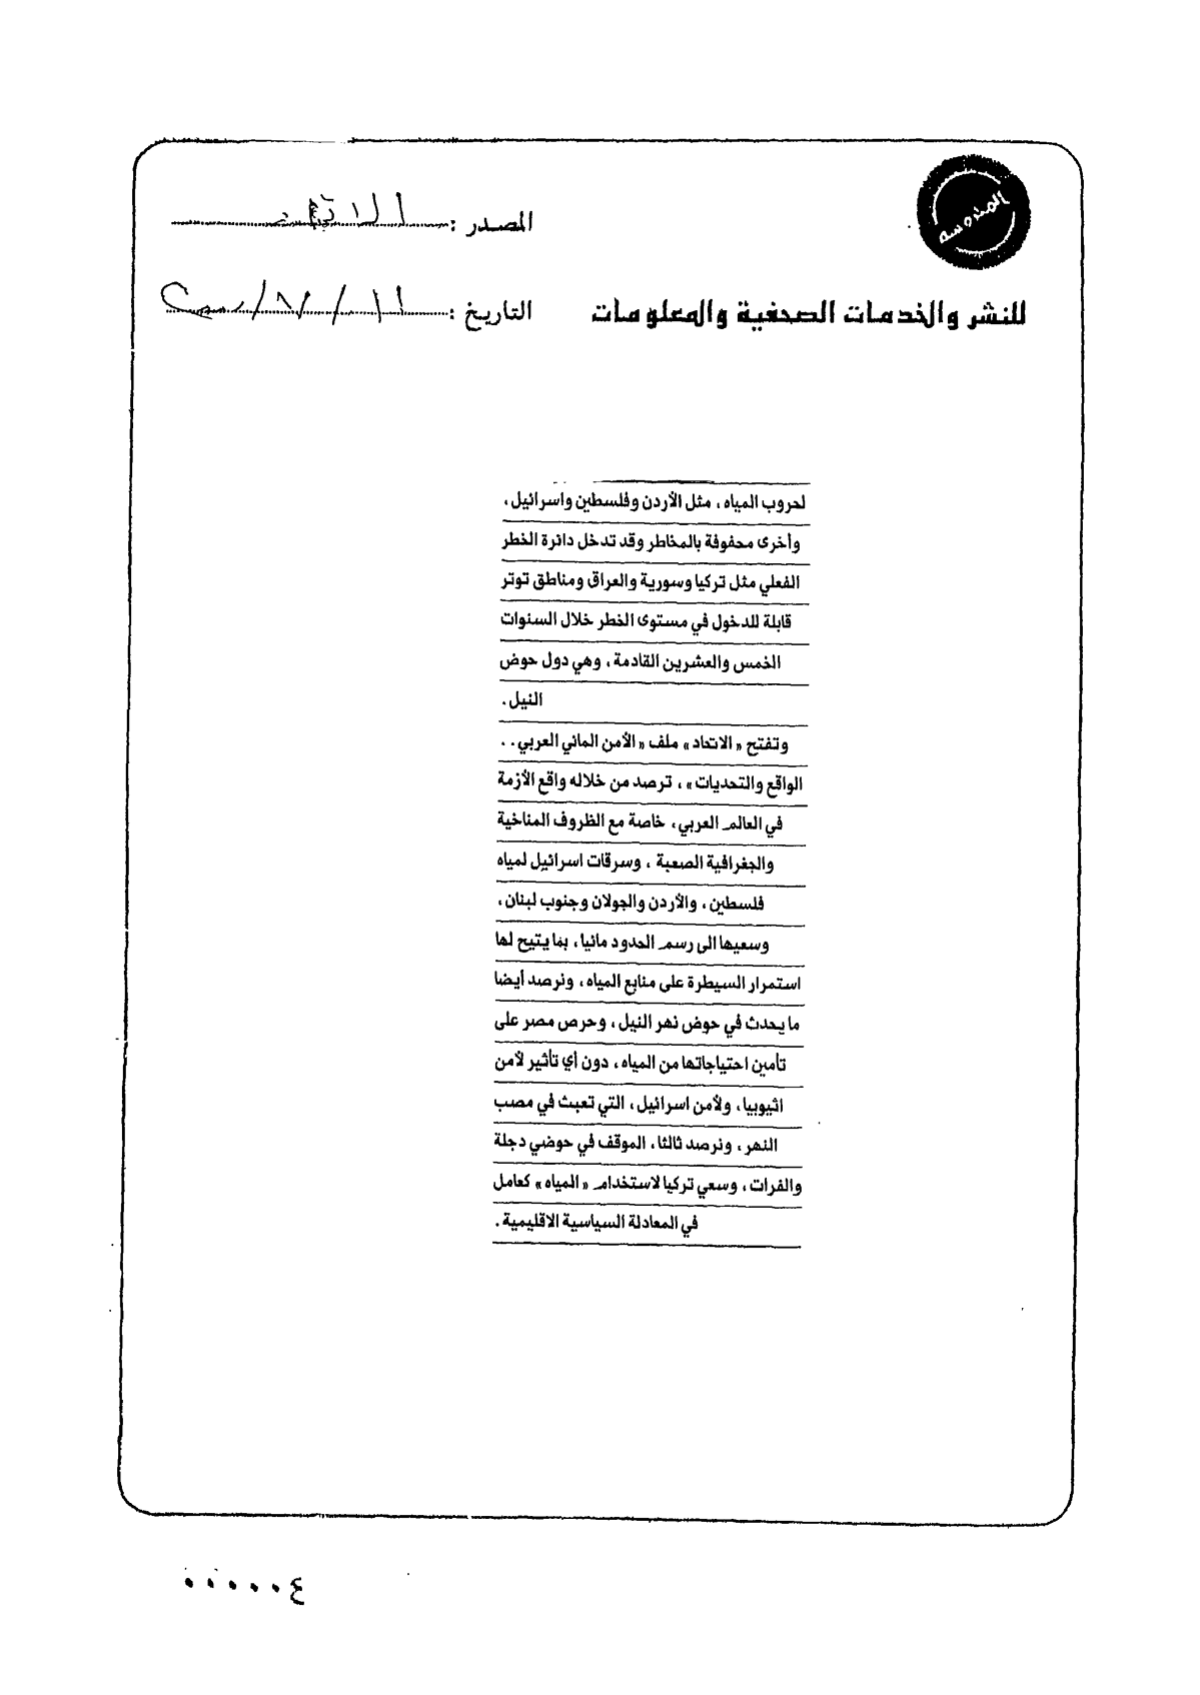 المحروسة
المصدر : الاتحاد
للنشر والخدمات الصحفية والمعلومات
التاريخ : ١١ / ٧ /
لحروب المياه ، مثل الأردن وفلسطين واسرائيل ،
وأخرى محفوفة بالمخاطر وقد تدخل دائرة الخطر
الفعلي مثل تركيا وسورية والعراق ومناطق توتر
قابلة للدخول في مستوى الخطر خلال السنوات
الخمس والعشرين القادمة ، وهي دول حوض
النيل .
وتفتح « الاتحاد » ملف « الأمن المائي العربي . .
الواقع والتحديات » ، ترصد من خلاله واقع الأزمة
في العالم العربي ، خاصة مع الظروف المناخية
والجغرافية الصعبة ، وسرقات اسرائيل لمياه
فلسطين ، والأردن والجولان وجنوب لبنان ،
وسعيها الى رسم الحدود مائيا ، بما يتيح لها
استمرار السيطرة على منابع المياه ، ونرصد أيضا
ما يحدث في حوض نهر النيل ، وحرص مصر على
تأمين احتياجاتها من المياه ، دون أي تأثير لأمن
اثيوبيا ، ولأمن اسرائيل ، التي تعبث في مصب
النهر ، ونرصد ثالثا ، الموقف في حوضي دجلة
والفرات ، وسعي تركيا لاستخدام « المياه » كعامل
في المعادلة السياسية الاقليمية .
٠٠٠٠٠٤